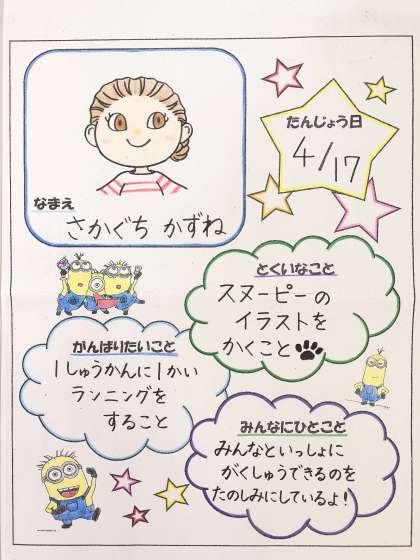 たんじょう日
4/17
なまえ
さかぐち かずね
とくいなこと
スヌーピーの
イラストを
かくこと
がんばりたいこと
1しゅうかんに1かい
ランニングを
すること
みんなにひとこと
みんなといっしょに
がくしゅうできるのを
たのしみにしているよ!